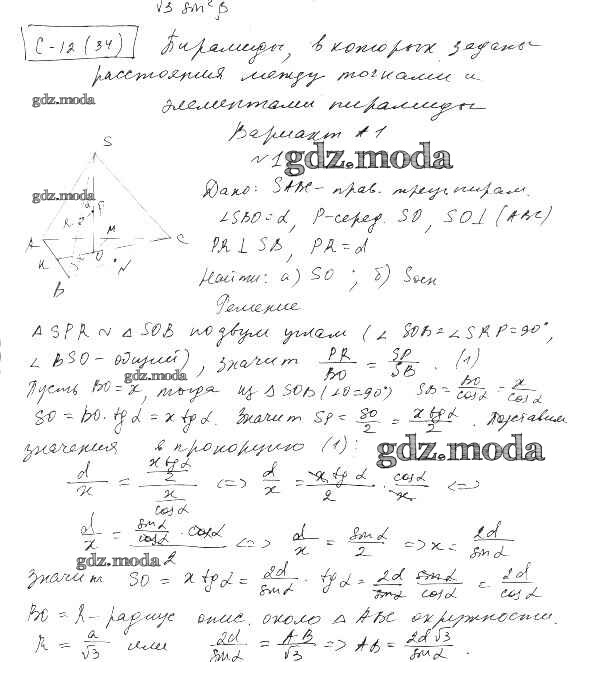 √3 sin²β
С-12(34) Пирамиды, в которых заданы
расстояния между точками и
gdz.moda
элементами пирамиды
Вариант А1
S
№1
gdz.moda
gdz.moda
Дано: SABC - прав. треуг. пирам.
∠SBO = α, P-серед. SO, SO⊥(ABC)
PR ⊥ SB, PR = d
Найти: а) SO ; б) Sосн
R P
A M C
K O N
B
Решение
△SPR ∾ △SOB по двум углам (∠SOB = ∠SRP = 90°,
∠BSO - общий), значит PR/BO = SP/SB. (1)
gdz.moda
Пусть BO = x, тогда из △SOB (∠O = 90°) SB = BO/cosα = x/cosα
SO = BO·tgα = x tgα. Значит SP = SO/2 = x tgα/2. Подставим
значения в пропорцию (1):
gdz.moda
d/x = (x tgα/2)/(x/cosα) <=> d/x = x tgα/2 · cosα/x <=>
d/x = (sinα/cosα · cosα)/2 <=> d/x = sinα/2 => x = 2d/sinα
gdz.moda
Значит SO = x tgα = 2d/sinα · tgα = 2d/sinα · sinα/cosα = 2d/cosα
BO = R - радиус опис. около △ABC окружности.
R = a/√3 или 2d/sinα = AB/√3 => AB = 2d√3/sinα.